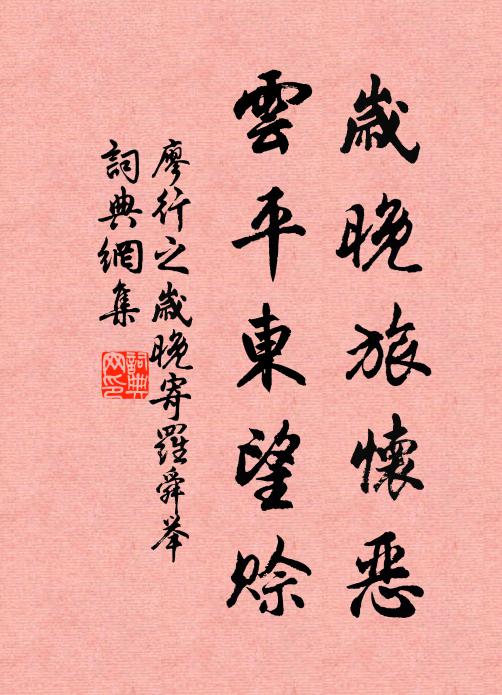 歲晚旅懷惡
雲平東望賒
廖行之歲晚寄羅舜举
詞典網集
詞典網印